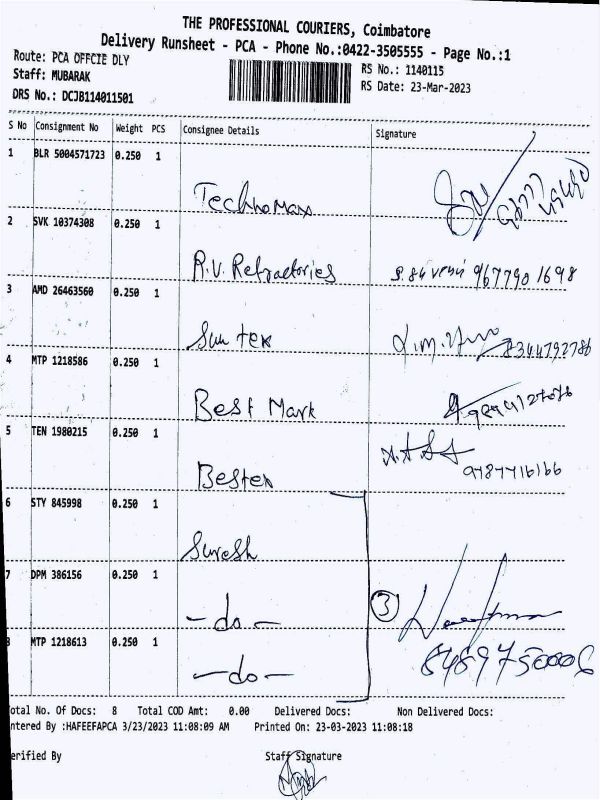 THE PROFESSIONAL COURIERS, Coimbatore
Delivery Runsheet - PCA - Phone No.:0422-3505555 - Page No.:1
Route: PCA OFFCIE DLY
RS No.: 1140115
Staff: MUBARAK
RS Date: 23-Mar-2023
DRS No.: DCJB114011501
S No Consignment No Weight PCS Consignee Details Signature
1 BLR 5004571723 0.250 1
Technomax
2 SVK 10374308 0.250 1
R.V. Refractories 967790 1698
3 AMD 26463560 0.250 1
Sun tex 8344792786
4 MTP 1218586 0.250 1
Best Mark
5 TEN 1980215 0.250 1
Bestex 9787716166
6 STY 845998 0.250 1
Suresh
7 DPM 386156 0.250 1
- do - 3
8 MTP 1218613 0.250 1
- do -
otal No. Of Docs: 8 Total COD Amt: 0.00 Delivered Docs: Non Delivered Docs:
ntered By :HAFEEFAPCA 3/23/2023 11:08:09 AM Printed On: 23-03-2023 11:08:18
erified By Staff Signature